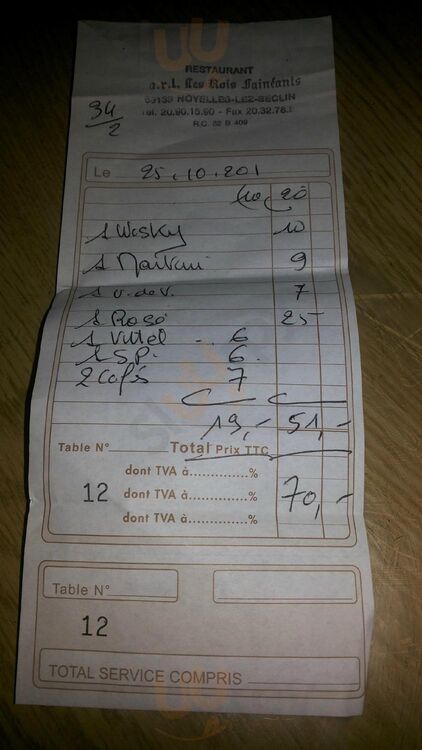 RESTAURANT
s.a.r.l. Les Rois Fainéants
59139 NOYELLES-LEZ-SECLIN
Tel. 20.90.15.90 - Fax 20.32.76.
R.C. 82 B 409
34/2
Le 25.10.201
20
1 Wisky 10
1 Martini 9
1 v.de v. 7
1 Rosé 25-
1 Vittel 6
1 S.P. 6
2 cafés 7
19,- 51,-
Table N° Total Prix TTC
dont TVA à..............%
12 dont TVA à..............% 70,-
dont TVA à..............%
Table N°
12
TOTAL SERVICE COMPRIS